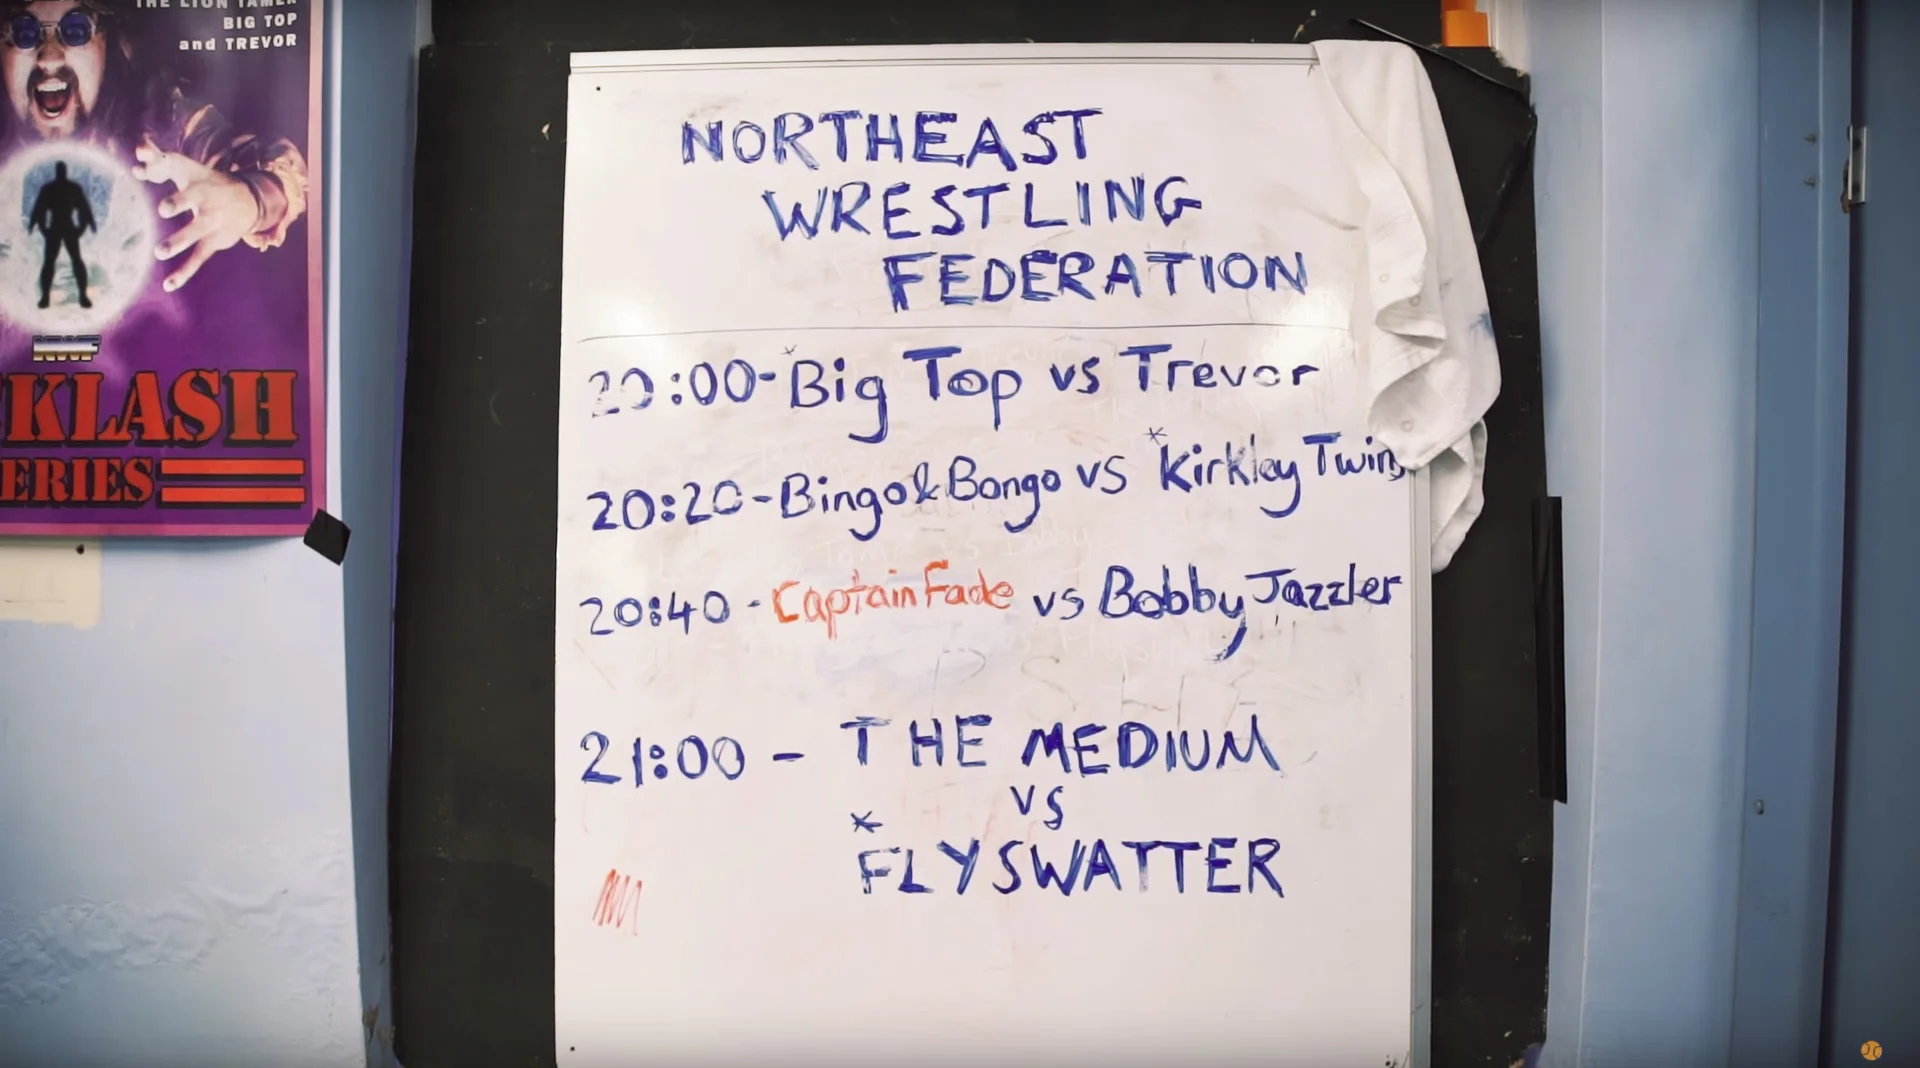 THE LION TAMER
BIG TOP
and TREVOR
NWF
KLASH
ERIES
NORTHEAST
WRESTLING
FEDERATION
20:00-*Big Top vs Trevor
20:20-Bingo&Bongo vs *Kirkley Twins
20:40-Captain Fade vs Bobby Jazzler
21:00 - THE MEDIUM
vs
*FLYSWATTER